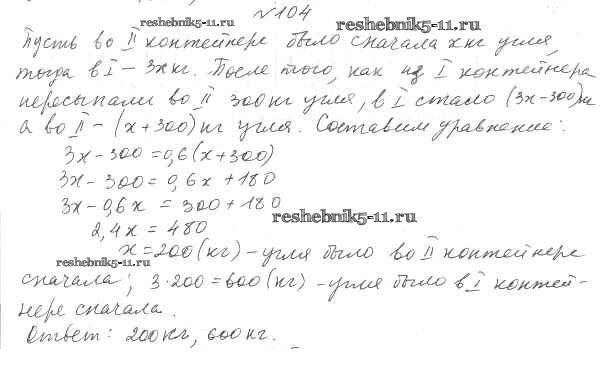 reshebnik5-11.ru №104 reshebnik5-11.ru
Пусть во II контейнере было сначала x кг угля,
тогда в I – 3x кг. После того, как из I контейнера
пересыпали во II 300 кг угля, в I стало (3x-300) кг
а во II – (x+300) кг угля. Составим уравнение:
3x-300=0,6(x+300)
3x-300=0,6x+180
3x-0,6x = 300+180
reshebnik5-11.ru
2,4x = 480
x=200(кг) – угля было во II контейнере
reshebnik5-11.ru
сначала; 3·200=600(кг) – угля было в I контей-
нере сначала.
Ответ: 200кг, 600кг.